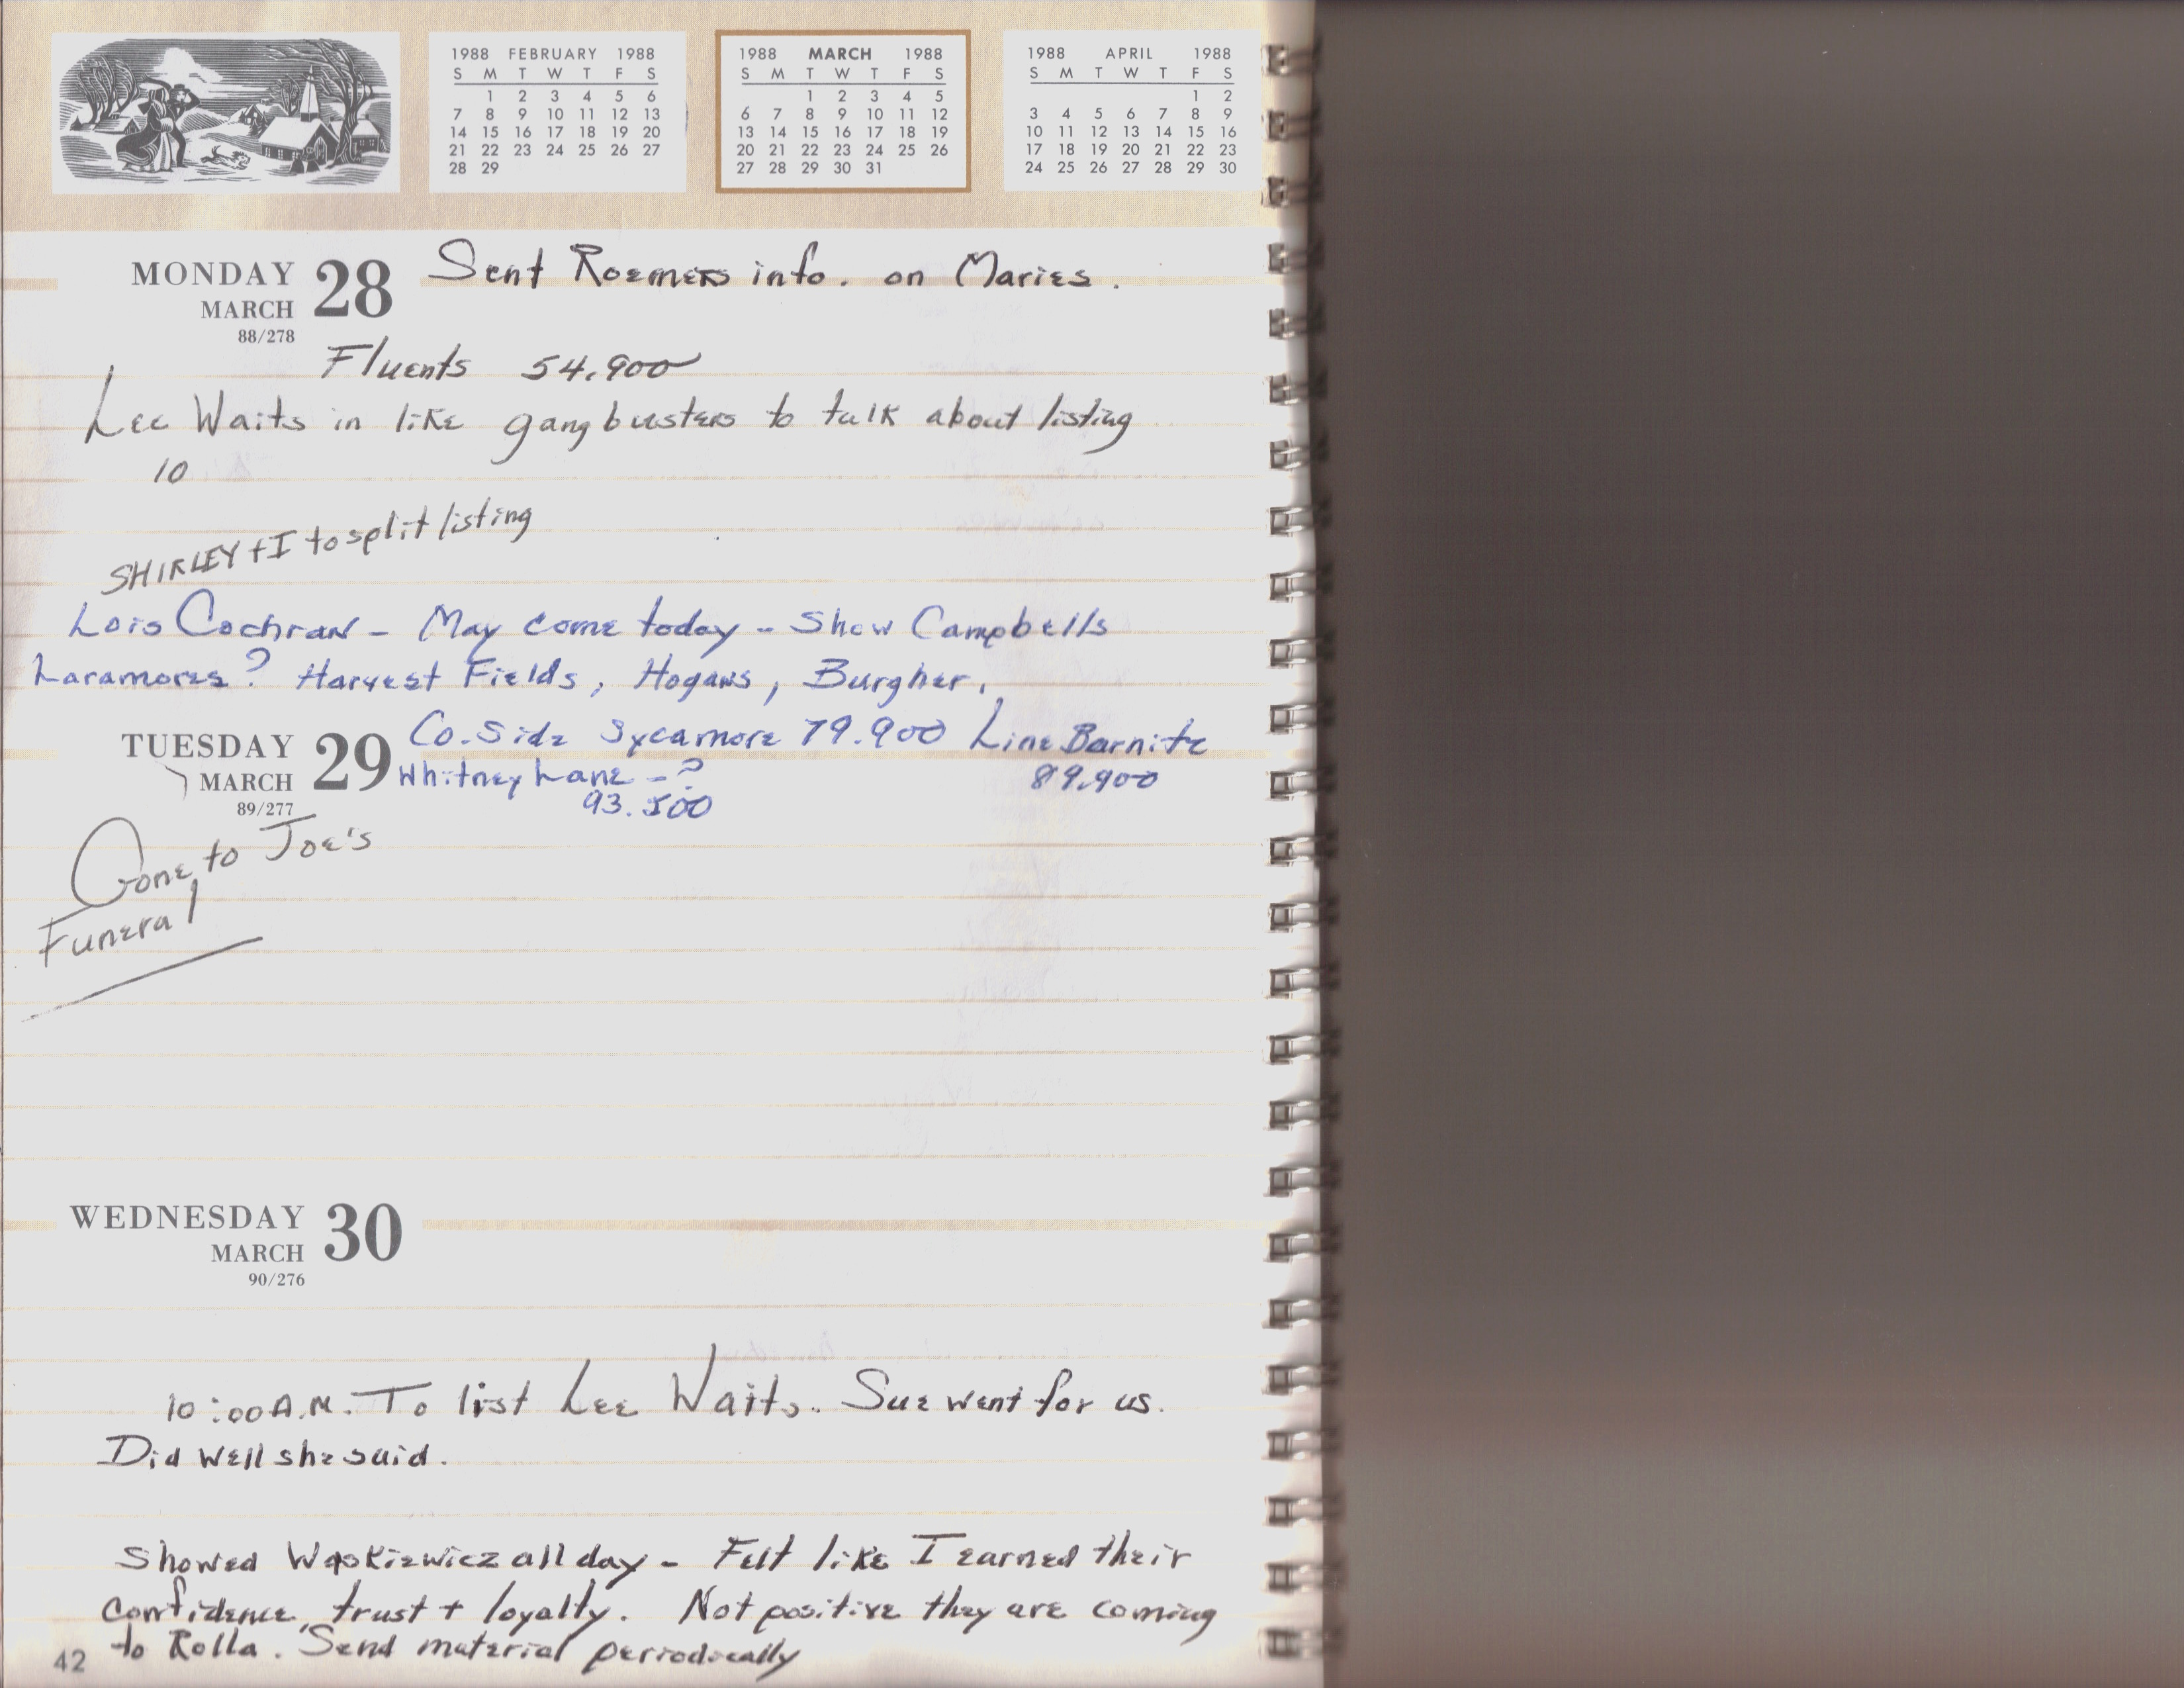 1988 FEBRUARY 1988
S M T W T F S
1 2 3 4 5 6
7 8 9 10 11 12 13
14 15 16 17 18 19 20
21 22 23 24 25 26 27
28 29
1988 MARCH 1988
S M T W T F S
1 2 3 4 5
6 7 8 9 10 11 12
13 14 15 16 17 18 19
20 21 22 23 24 25 26
27 28 29 30 31
1988 APRIL 1988
S M T W T F S
1 2
3 4 5 6 7 8 9
10 11 12 13 14 15 16
17 18 19 20 21 22 23
24 25 26 27 28 29 30
MONDAY 28 Sent Roemers info. on Maries.
MARCH
88/278
Fluents 54.900
Lee Waits in like gangbusters to talk about listing
10
SHIRLEY + I to split listing
Lois Cochran - May come today - Show Campbells
Laramores? Harvest Fields, Hogans, Burgher.
TUESDAY 29 Co. Side Sycamore 79.900 Line Barnitz
MARCH Whitney Lane - ? 89.900
89/277 93.500
Gone to Joe's
Funeral
WEDNESDAY 30
MARCH
90/276
10:00 A.M. To list Lee Waits. Sue went for us.
Did well she said.
Showed Waskiewicz all day - Felt like I earned their
confidence, trust + loyalty. Not positive they are coming
to Rolla. Send material periodically
42